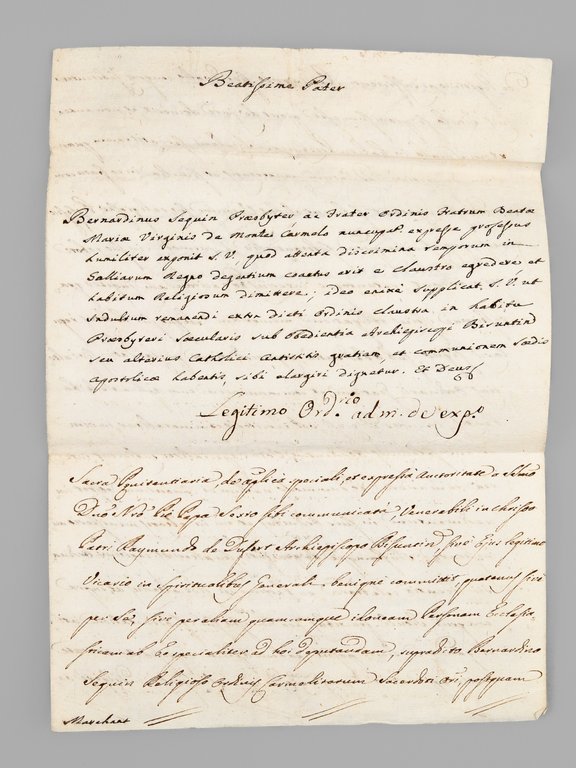 Beatissime Pater
Bernardinus Seguin Præsbyter ac Frater Ordinis Fratrum Beatæ
Mariæ Virginis de Monte Carmelo nuncupat. expresse professus
humiliter exponit S. V. quod attenta discrimina temporum in
Galliarum Regno degentium coactus erit e claustro egredere et
habitum Religiosum dimittere; ideo enixe supplicat S. V. ut
Indultum remanendi extra dicti ordinis claustra in habitu
Præsbyteri Sæcularis sub obedientia Archiepiscopi Bisuntini
seu alterius Catholici Antistitis gratiam, et communionem Sædis
Apostolicæ habentis, sibi elargiri dignetur. Et Deus
Legitimo Ord.rio adm. de exp.o
Sacra Pœnitentiaria de aplica speciali, et expressa Auctoritate a SSmo
Dno Nro Pio Papa Sexto sibi communicata, Venerabili in Christo
Patri Raymundo de Dufort Archiepiscopo Bisuntin, sive Ejus legitimo
Vicario in Spiritualibus Generali benigne committit, quatenus sive
per Se, sive per aliam quamcumque idoneam Personam Ecclesia
sticam ab Eo specialiter ad hoc deputandam, supradicto Bernardino
Seguin Religioso Ordinis Carmelitarum Sacerdoti Ori, postquam
Marchant